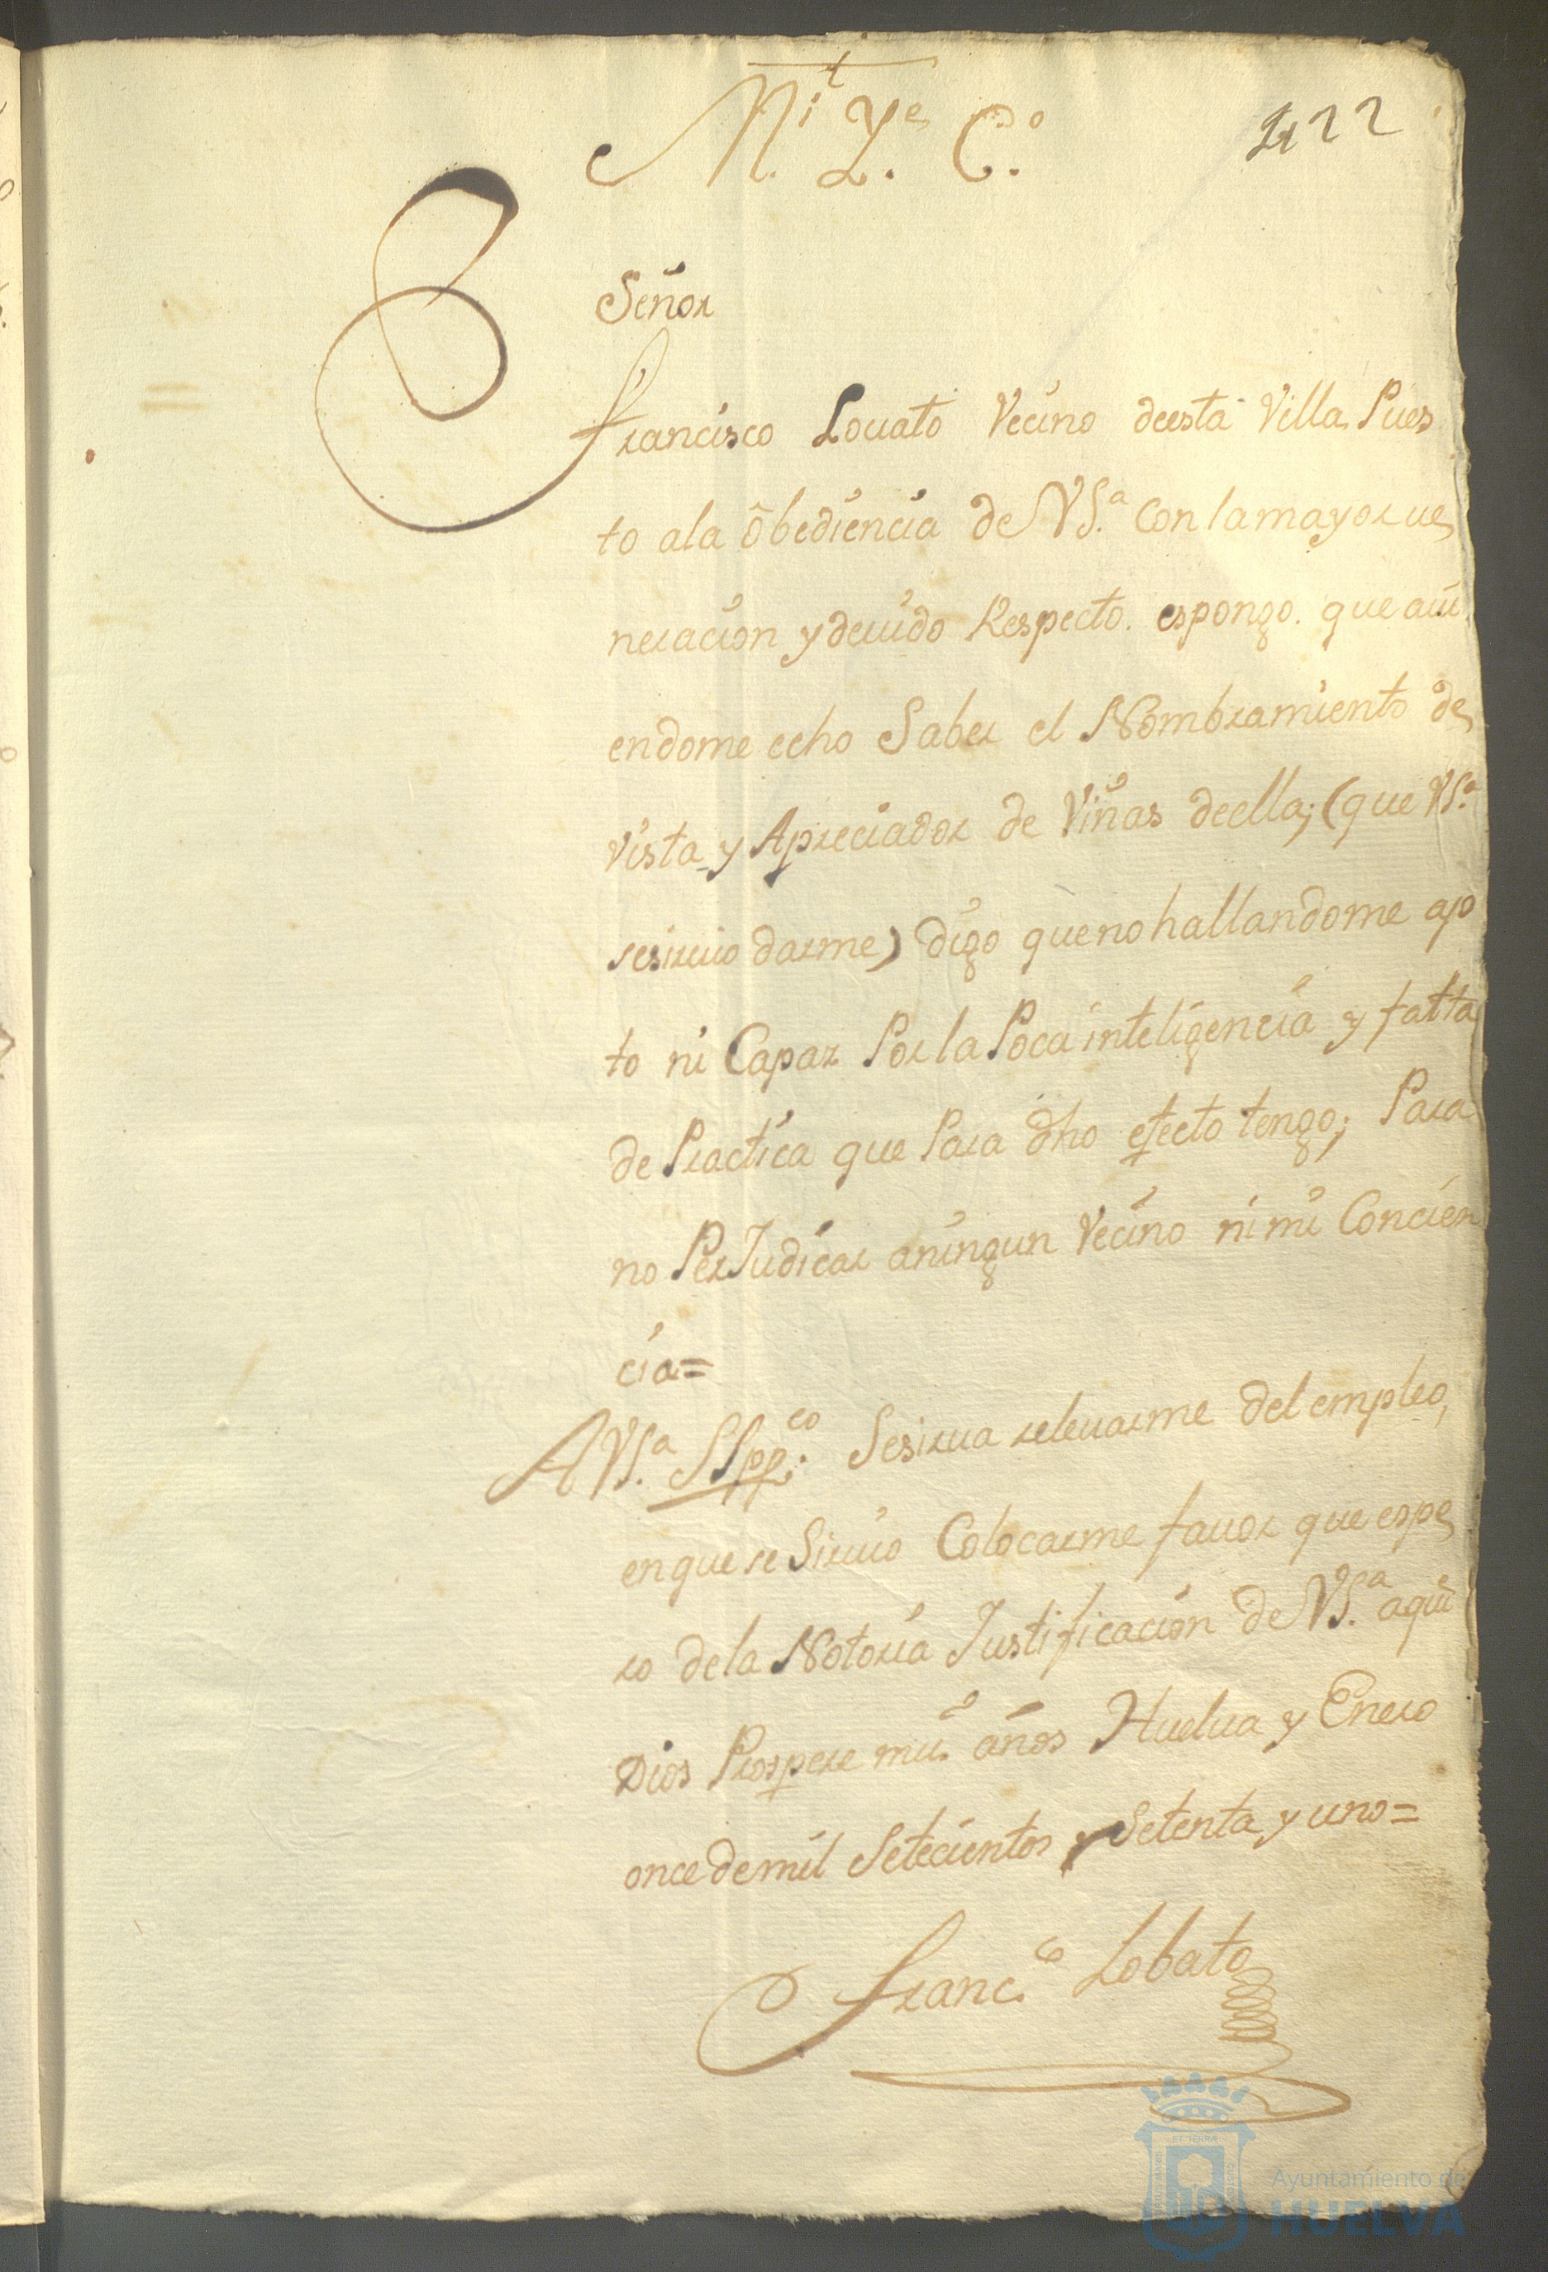 M.ⁱ Y.ᵉ C.ᵒ
422
Señor
Francisco Louato Vecino deesta Villa Pues
to ala Obediencia de VS.ª Con la mayor ue
neracion y deuido Respecto. espongo. que aui
endome echo Saber el Nombramiento de
vista y Apreciador de Viñas deella; (que VS.ª
sesiruio darme) digo que no hallandome apo
to ni Capaz Por la Poca inteligencia y falta
de Practica que Para dho efecto tengo; Para
no PerJudicar aningun Vecino ni mi Concien
cia=
A VS.ª SSpp.ᶜᵒ Sesirua releuarme del empleo,
en que se Siruio Colocarme fauor que espe
ro dela Notoria Justificacion de VS.ª aqui
Dios Prospere mu.ˢ años Huelua y Enero
once de mil Setecientos y Setenta y uno=
Franc.ᶜᵒ Lobato
Ayuntamiento de
HUELVA